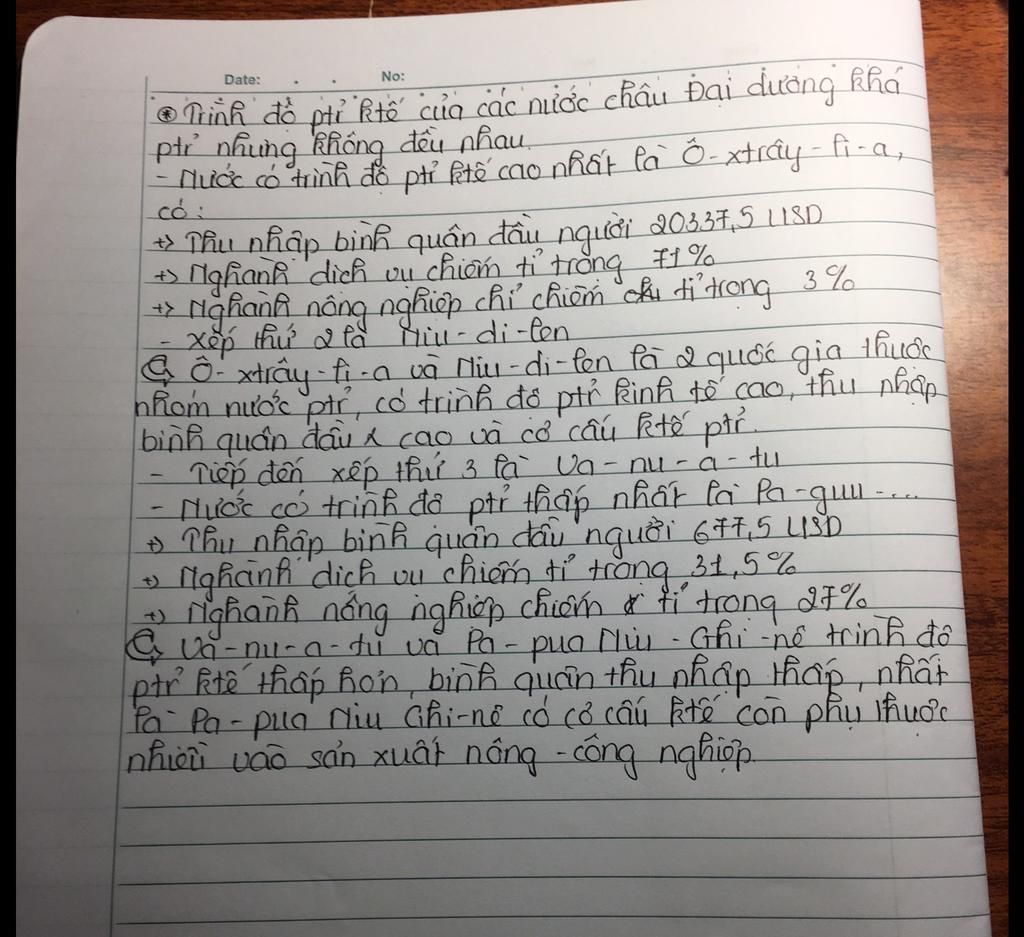 Date: . . No:
⊛ Trình độ ptr̉ ktế của các nước châu Đại dương khá
ptr̉ nhưng không đều nhau.
- Nước có trình độ ptr̉ ktế cao nhất là Ô-xtrây-li-a,
có:
+> Thu nhập bình quân đầu người 20337,5 USD
+> Nghành dịch vụ chiếm tỉ trọng 71%
+> Nghành nông nghiệp chỉ chiếm tỉ trọng 3%
- xếp thứ 2 là Niu-di-len
Ô-xtrây-li-a và Niu-di-len là 2 quốc gia thuộc
nhóm nước ptr̉, có trình độ ptr̉ kinh tế cao, thu nhập
bình quân đầu cao và cơ cấu ktế ptr̉.
- Tiếp đến xếp thứ 3 là Va-nu-a-tu
- Nước có trình độ ptr̉ thấp nhất là Pa-guu-....
+> Thu nhập bình quân đầu người 677,5 USD
+> Nghành dịch vụ chiếm tỉ trọng 31,5%
+> Nghành nông nghiệp chiếm tỉ trọng 27%
Va-nu-a-tu và Pa-pua Niu-Ghi-nê trình độ
ptr̉ ktế thấp hơn, bình quân thu nhập thấp, nhất
là Pa-pua Niu Ghi-nê có cơ cấu ktế còn phụ thuộc
nhiều vào sản xuất nông-công nghiệp.